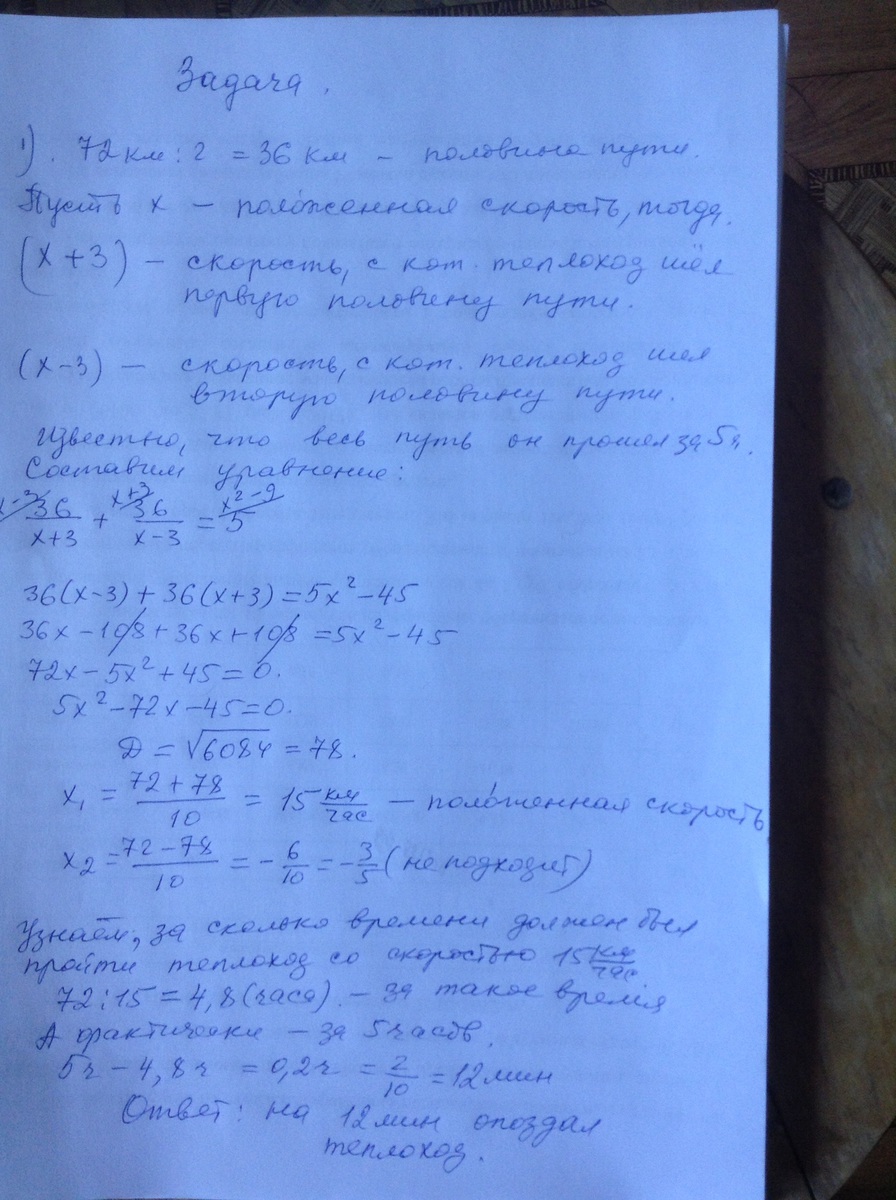 Задача.
1). 72 км : 2 = 36 км – половина пути.
Пусть x – поло́женная скорость, тогда.
(x + 3) – скорость, с кот. теплоход шёл
первую половину пути.
(x – 3) – скорость, с кот. теплоход шел
вторую половину пути.
Известно, что весь путь он прошел за 5 ч.
Составим уравнение:
x-3 x+3 x² - 9
36/(x+3) + 36/(x-3) = 5
36(x-3) + 36(x+3) = 5x² - 45
36x - 108 + 36x + 108 = 5x² - 45
72x - 5x² + 45 = 0.
5x² - 72x - 45 = 0.
Д = √6084 = 78.
x₁ = (72 + 78)/10 = 15 км/час – поло́женная скорость
x₂ = (72 - 78)/10 = - 6/10 = - 3/5 (не подходит)
Узнаём, за сколько времени должен был
пройти теплоход со скоростью 15 км/час
72 : 15 = 4,8 (часа). – за такое время
А фактически – за 5 часов.
5ч – 4,8ч = 0,2ч = 2/10 = 12 мин
Ответ: на 12 мин опоздал
теплоход.